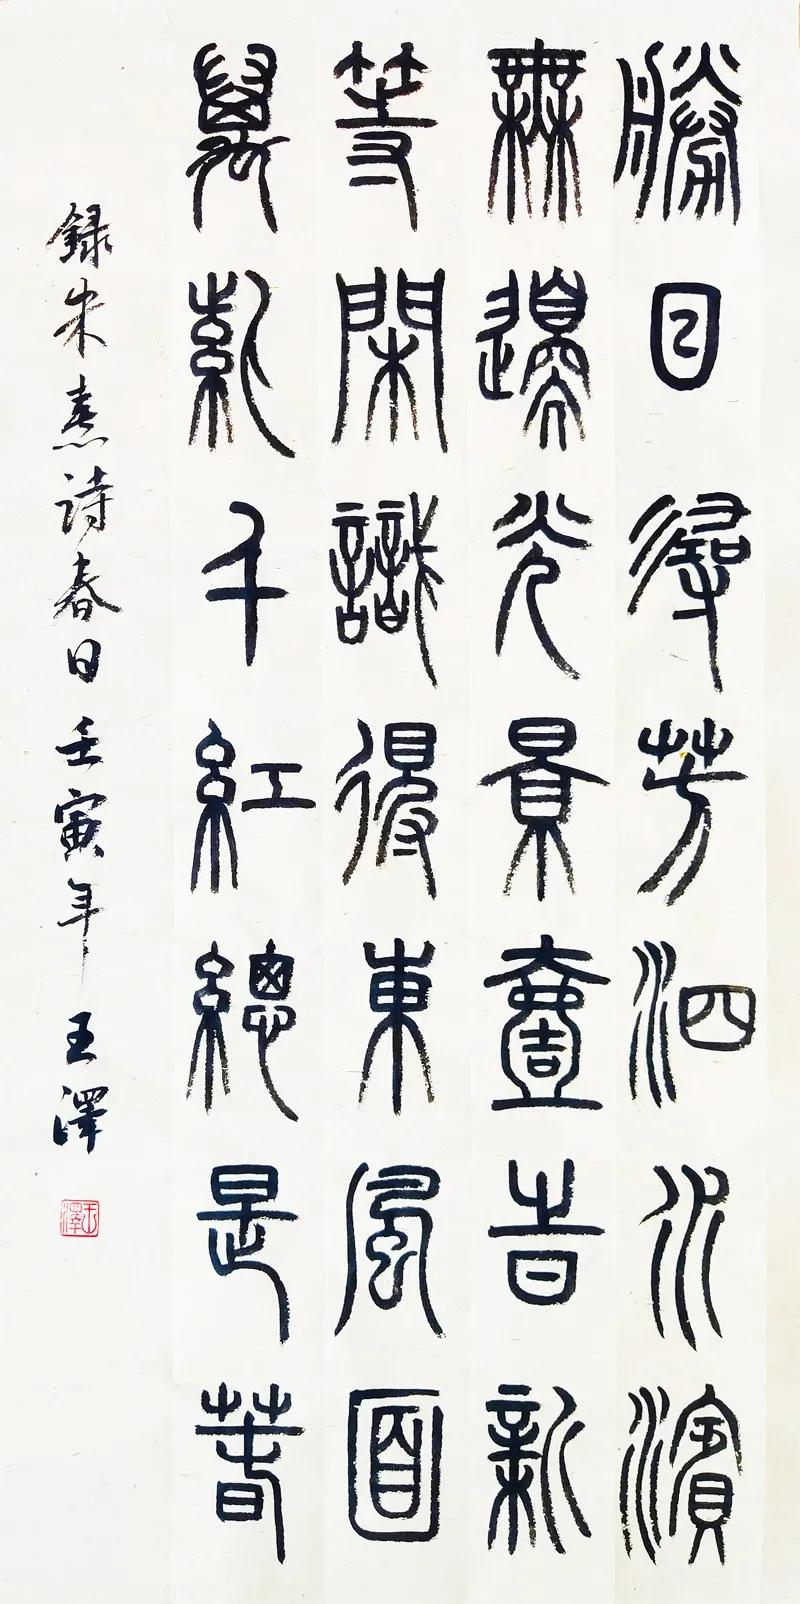 勝日尋芳泗水濱
無邊光景壹旹新
等閑識得東風面
萬紫千紅總是萅
録朱熹詩春日壬寅年王澤
王澤